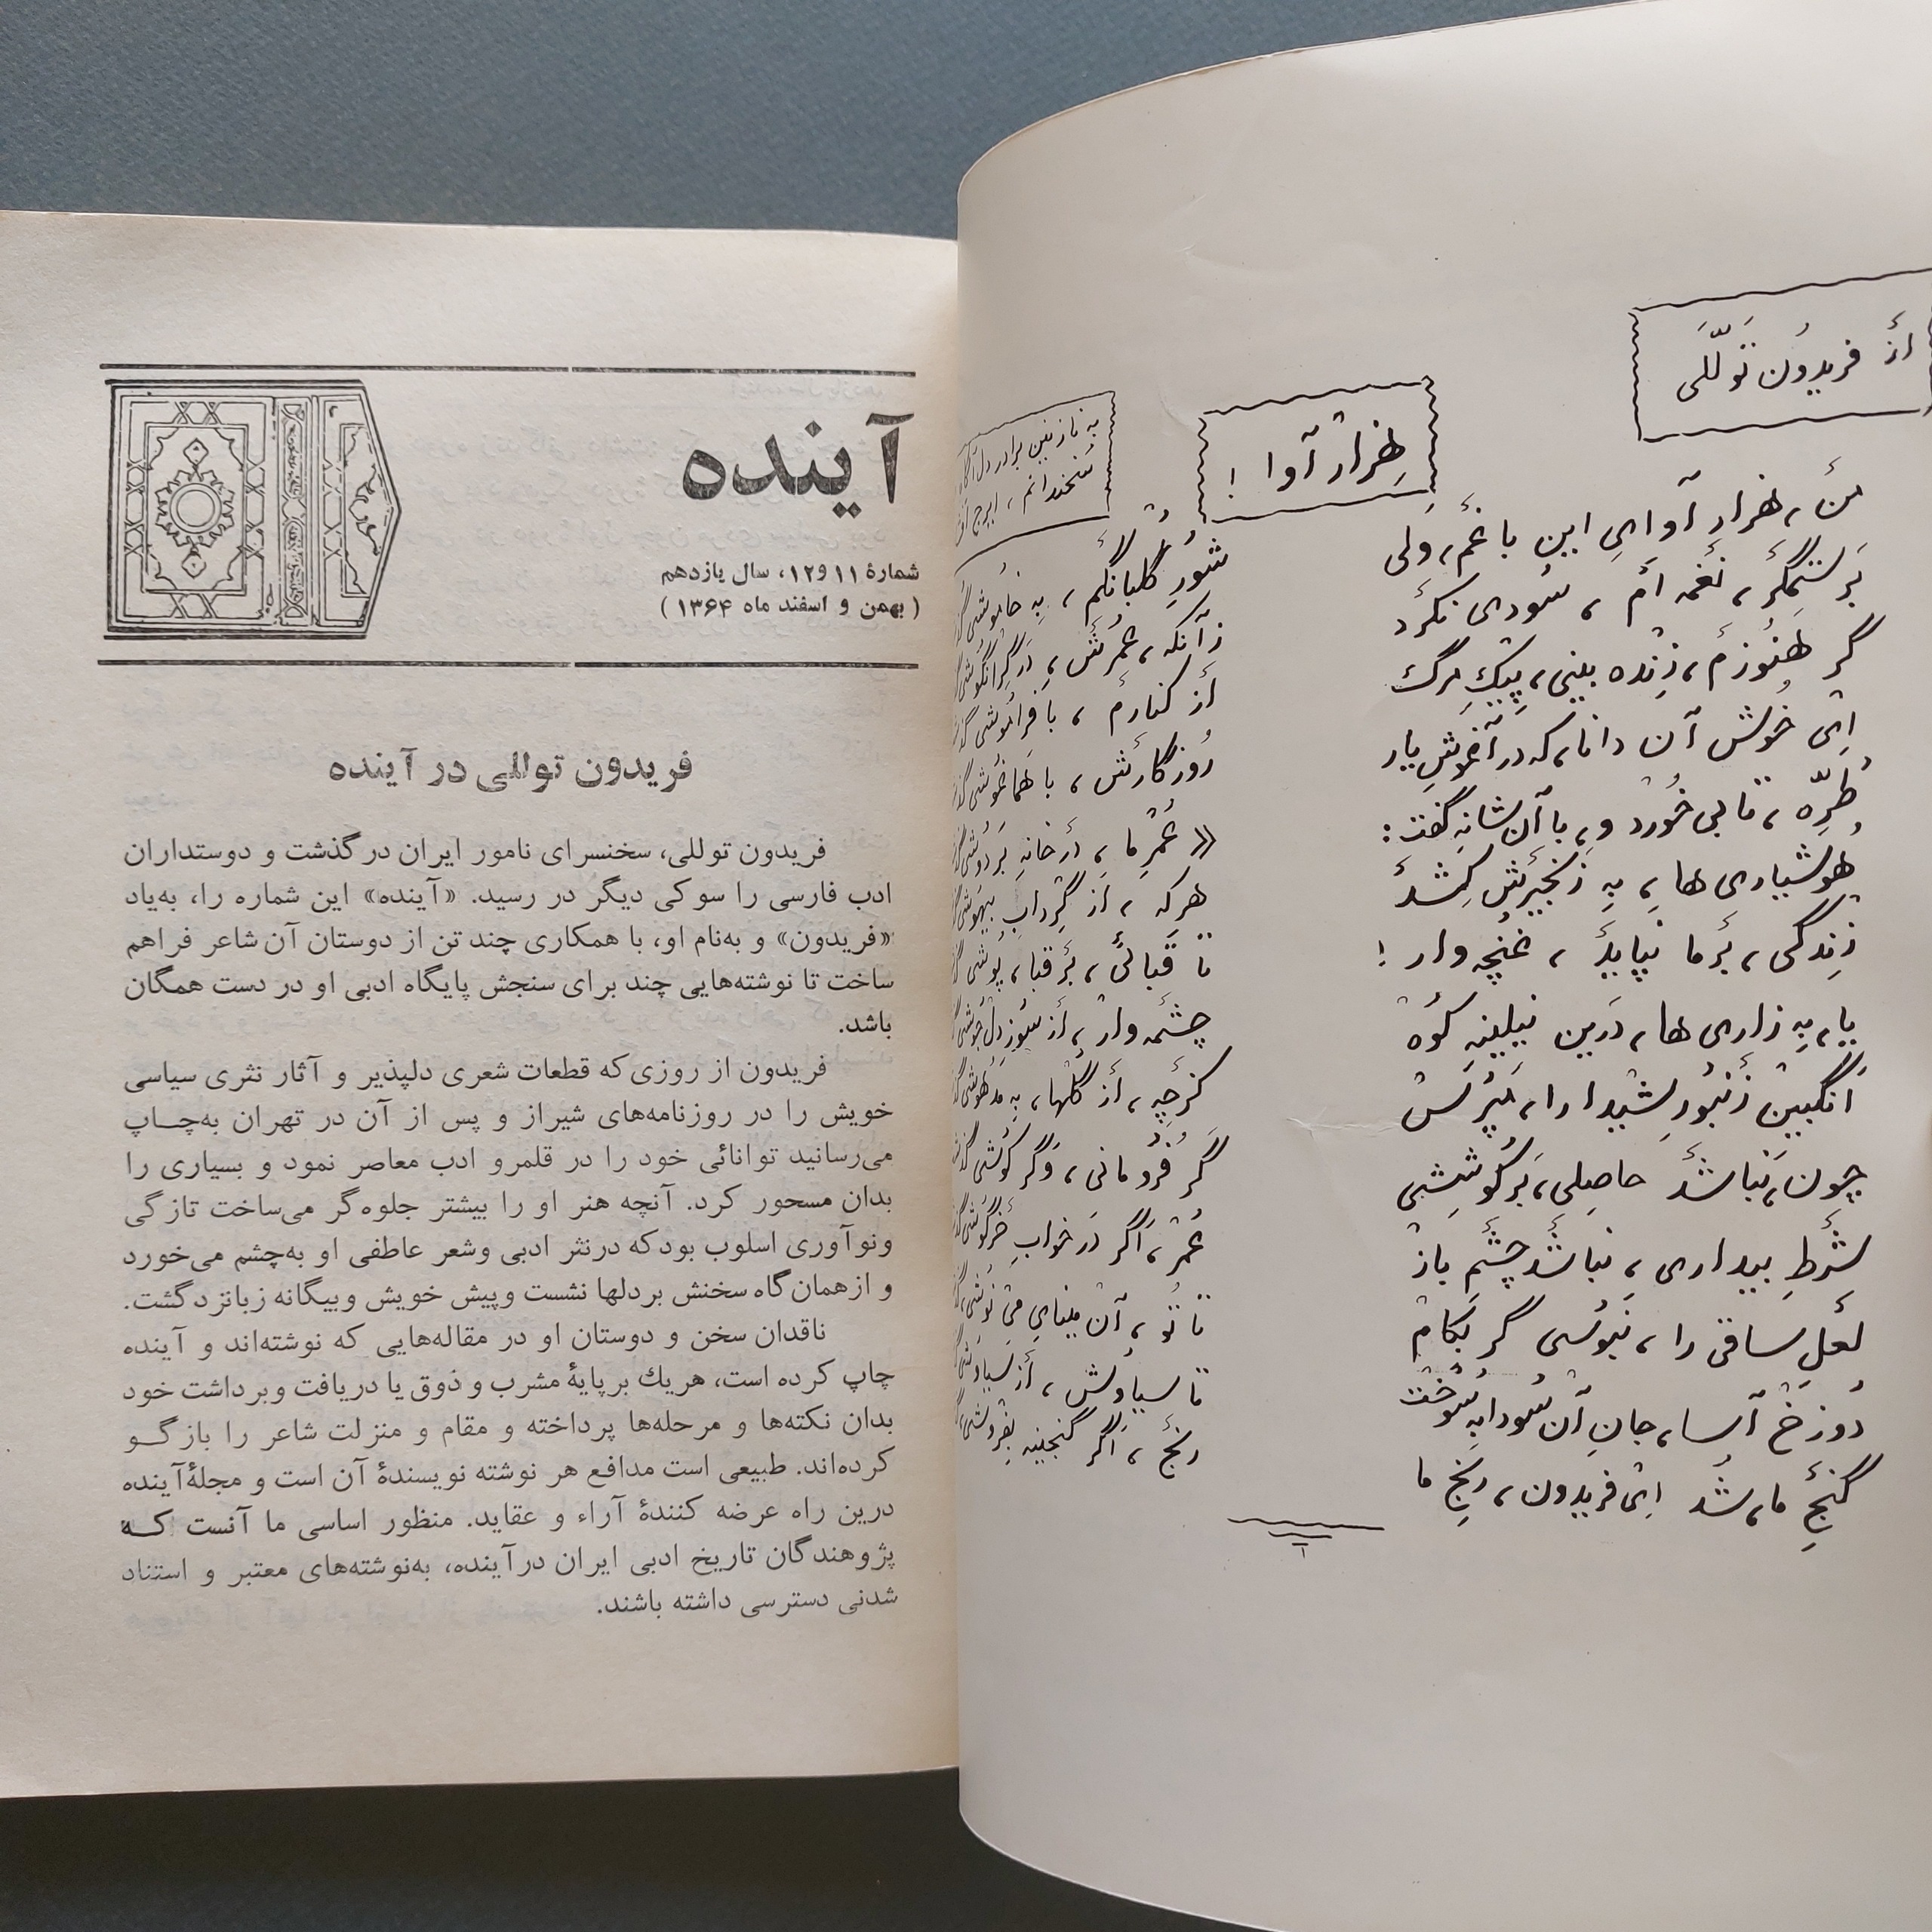 از فریدون تَوَلّلی
هِزار آوا !
به نازنین برادر دل آگاه
سخندانم ، ایرج
من ، هزار آوایِ این باغم ، ولی
شورِ گلبانگم ، به خاموشی
بر ستمگر ، نغمه اَم ، سودی نکرد
زآنکه ، عمرش ، در گرانگوشی
گر هنوزم ، زنده بینی ، پیکِ مرگ
از کنارم ، با فراموشی
ای خوش آن دانا ، که در آغوشِ یار
روزگارش ، با هماغوشی
طرّه ، تابی خورد و ، با آن شانه گفت :
« عمرِ ما ، در خانه بر دوشی
هوشیاری ها ، به زنجیرش کِشد
هر که ، از گردابِ بیهوشی
زندگی ، بر ما نپاید ، غنچه وار !
تا قبائی ، بر قبا ، پوشی
یا ، به زاری ها ، درین نیلینه کوه
چشمه وار ، از سوزِ دل جوشی
انگبین زنبورِ شیدا را ، مپرس
کزچه ، از گلها ، به مدهوشی
چون ، نباشد حاصلی ، بر کوششی
گر فرومانی ، وگر کوشی
شرطِ بیداری ، نباشد چشمِ باز
عمر ، اگر در خوابِ خرگوشی
لعلِ ساقی را ، نبوسی گر بکام
تا تو ، آن مینایِ می نوشی
دوزخ آسا ، جانِ آن سودابه سوخت
تا سیاوش ، از سیاوشی
گنجِ ما ، شد ای فریدون ، رنجِ ما
رنج ، اگر گنجینه بفروشی
آینده
شمارهٔ ۱۱ و۱۲، سال یازدهم
( بهمن و اسفند ماه ۱۳۶۴ )
فریدون توللی در آینده
فریدون توللی، سخنسرای نامور ایران درگذشت و دوستداران
ادب فارسی را سوکی دیگر در رسید. «آینده» این شماره را، به‌یاد
«فریدون» و به‌نام او، با همکاری چند تن از دوستان آن شاعر فراهم
ساخت تا نوشته‌هایی چند برای سنجش پایگاه ادبی او در دست همگان
باشد.
فریدون از روزی‌که قطعات شعری دلپذیر و آثار نثری سیاسی
خویش را در روزنامه‌های شیراز و پس از آن در تهران به‌چــاپ
می‌رسانید توانائی خود را در قلمرو ادب معاصر نمود و بسیاری را
بدان مسحور کرد. آنچه هنر او را بیشتر جلوه‌گر می‌ساخت تازگی
ونوآوری اسلوب بودکه درنثر ادبی وشعر عاطفی او به‌چشم می‌خورد
و ازهمان‌گاه سخنش بردلها نشست وپیش خویش وبیگانه زبانزدگشت.
ناقدان سخن و دوستان او در مقاله‌هایی که نوشته‌اند و آینده
چاپ کرده است، هریك برپایهٔ مشرب و ذوق یا دریافت وبرداشت خود
بدان نکته‌ها و مرحله‌ها پرداخته و مقام و منزلت شاعر را بازگــو
کرده‌اند. طبیعی است مدافع هر نوشته نویسندهٔ آن است و مجلهٔ‌آینده
درین راه عرضه کنندهٔ آراء و عقاید. منظور اساسی ما آنست کــه
پژوهندگان تاریخ ادبی ایران درآینده، به‌نوشته‌های معتبر و استناد
شدنی دسترسی داشته باشند.